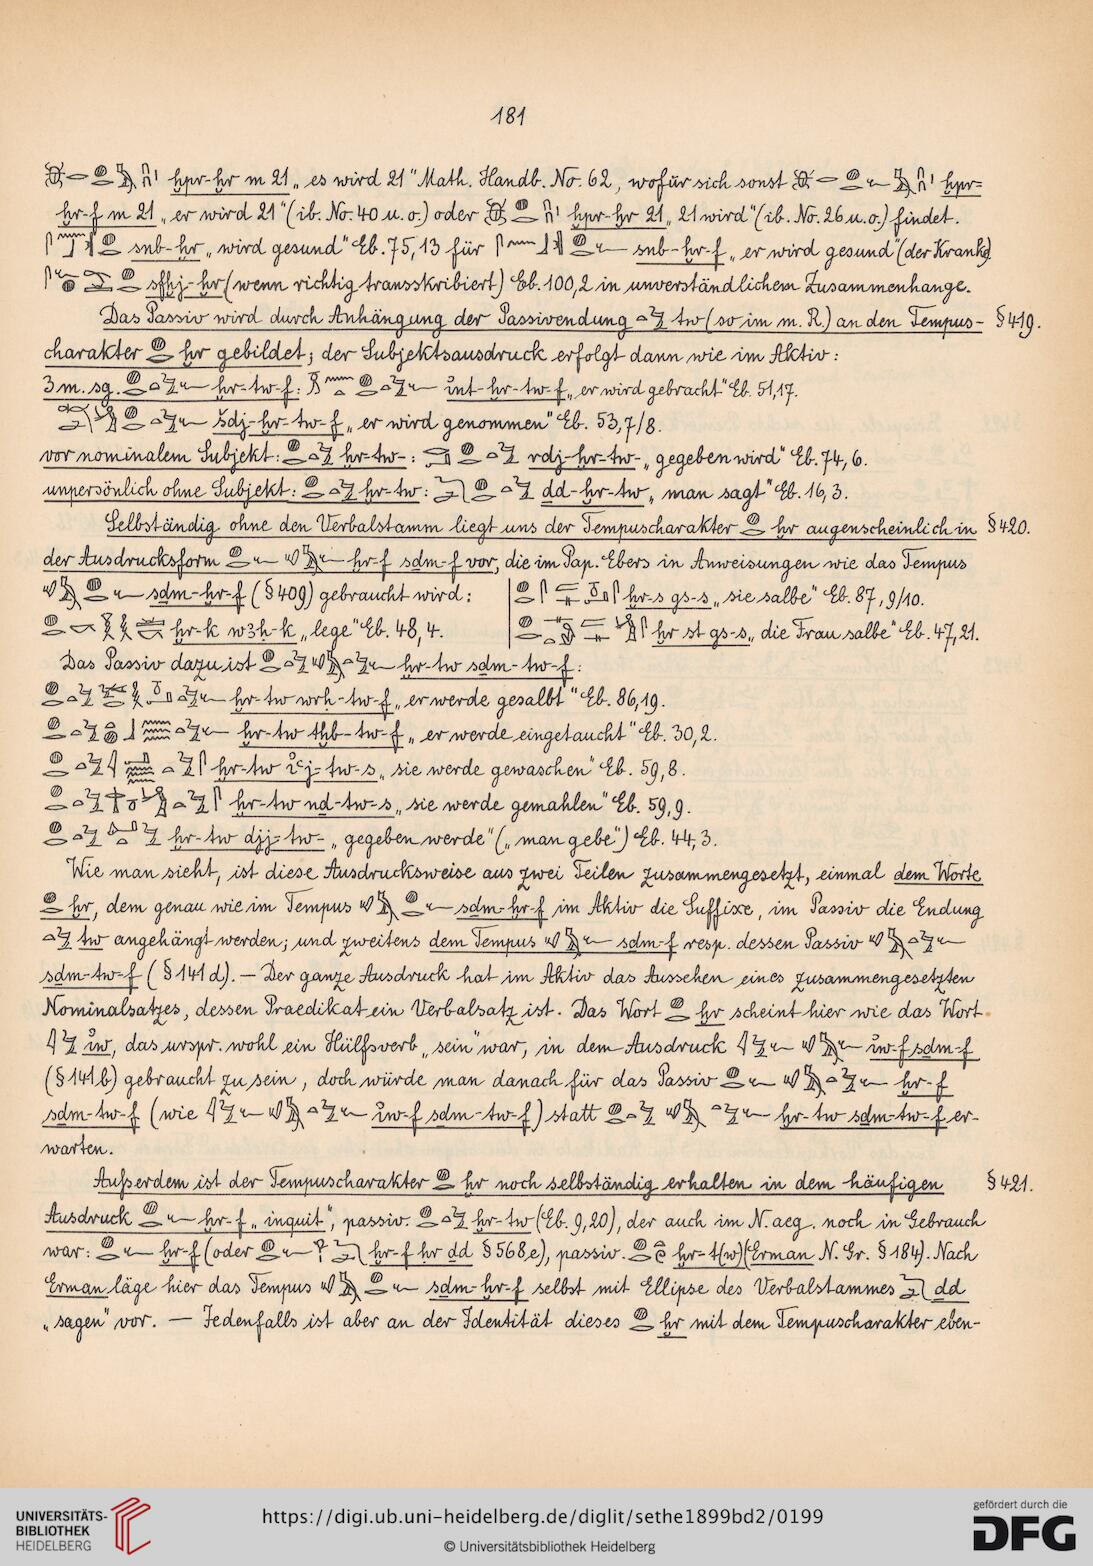 181
ḫpr-ḫr m 21 „es wird 21“ Math. Handb. No. 62, wofür sich sonst ḫpr=
ḫr-f m 21 „er wird 21“ (ib. No. 40 u. o.) oder ḫpr-ḫr 21 „21 wird“ (ib. No. 26 u. o.) findet.
snb-ḫr „wird gesund“ Eb. 75,13 für snb-ḫr-f „er wird gesund“ (der Kranke)
sfḫj-ḫr (wenn richtig transskribiert) Eb. 100,2 in unverständlichem Zusammenhange.
Das Passiv wird durch Anhängung der Passivendung tw (so im m. R.) an den Tempus- § 419.
charakter ḫr gebildet; der Subjektsausdruck erfolgt dann wie im Aktiv:
3 m. sg. ḫr-tw-f: ỉnt-ḫr-tw-f „er wird gebracht“ Eb. 51,17.
šdj-ḫr-tw-f „er wird genommen“ Eb. 53,7/8.
vor nominalem Subjekt: ḫr-tw-: rdj-ḫr-tw- „gegeben wird“ Eb. 74,6.
unpersönlich ohne Subjekt: ḫr-tw: ḏd-ḫr-tw „man sagt“ Eb. 16,3.
Selbständig ohne den Verbalstamm liegt uns der Tempuscharakter ḫr augenscheinlich in § 420.
der Ausdrucksform ḫr-f sḏm-f vor, die im Pap. Ebers in Anweisungen wie das Tempus
sḏm-ḫr-f (§ 409) gebraucht wird: ḫr-s gs-s „sie salbe“ Eb. 87,9/10.
ḫr-k wꜣḥ-k „lege“ Eb. 48,4. ḫr st gs-s „die Frau salbe“ Eb. 47,21.
Das Passiv dazu ist ḫr-tw sḏm-tw-f:
ḫr-tw wrḥ-tw-f „er werde gesalbt“ Eb. 86,19.
ḫr-tw tḫb-tw-f „er werde eingetaucht“ Eb. 30,2.
ḫr-tw ỉꜥj-tw-s „sie werde gewaschen“ Eb. 59,8.
ḫr-tw nḏ-tw-s „sie werde gemahlen“ Eb. 59,9.
ḫr-tw djj-tw- „gegeben werde“ („man gebe“) Eb. 44,3.
Wie man sieht, ist diese Ausdrucksweise aus zwei Teilen zusammengesetzt, einmal dem Worte
ḫr, dem genau wie im Tempus sḏm-ḫr-f im Aktiv die Suffixe, im Passiv die Endung
tw angehängt werden; und zweitens dem Tempus sḏm-f resp. dessen Passiv
sḏm-tw-f (§ 141 d). — Der ganze Ausdruck hat im Aktiv das Aussehen eines zusammengesetzten
Nominalsatzes, dessen Praedikat ein Verbalsatz ist. Das Wort ḫr scheint hier wie das Wort
ỉw, das urspr. wohl ein Hülfsverb „sein“ war, in dem Ausdruck ỉw-f sḏm-f
(§ 141 b) gebraucht zu sein, doch würde man danach für das Passiv ḫr-f
sḏm-tw-f (wie ỉw-f sḏm-tw-f) statt ḫr-tw sḏm-tw-f er-
warten.
Außerdem ist der Tempuscharakter ḫr noch selbständig erhalten in dem häufigen § 421.
Ausdruck ḫr-f „inquit“, passiv. ḫr-tw (Eb. 9,20), der auch im N. aeg. noch in Gebrauch
war: ḫr-f (oder ḫr-f ḥr ḏd § 568,e), passiv. ḫr-t(w) (Erman N. Gr. § 184). Nach
Erman läge hier das Tempus sḏm-ḫr-f selbst mit Ellipse des Verbalstammes ḏd
„sagen“ vor. — Jedenfalls ist aber an der Identität dieses ḫr mit dem Tempuscharakter eben-
UNIVERSITÄTS-
BIBLIOTHEK
HEIDELBERG
https://digi.ub.uni-heidelberg.de/diglit/sethe1899bd2/0199
© Universitätsbibliothek Heidelberg
gefördert durch die
DFG